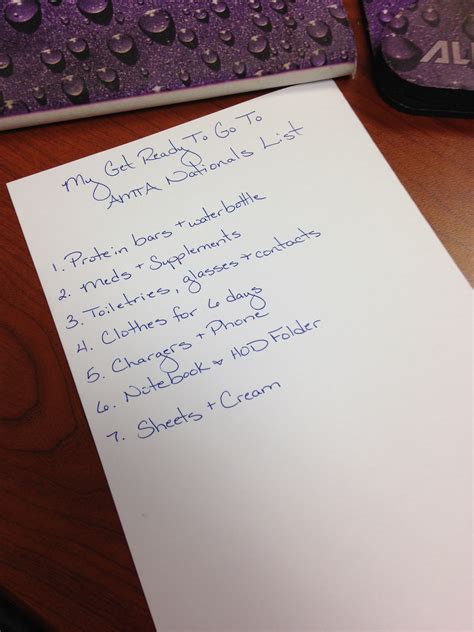 AL
My Get Ready To Go To
AMTA Nationals List
1. Protein bars + waterbottle
2. Meds + Supplements
3. Toiletries, glasses + contacts
4. Clothes for 6 days
5. Chargers + Phone
6. Notebook + HOD Folder
7. Sheets + Cream